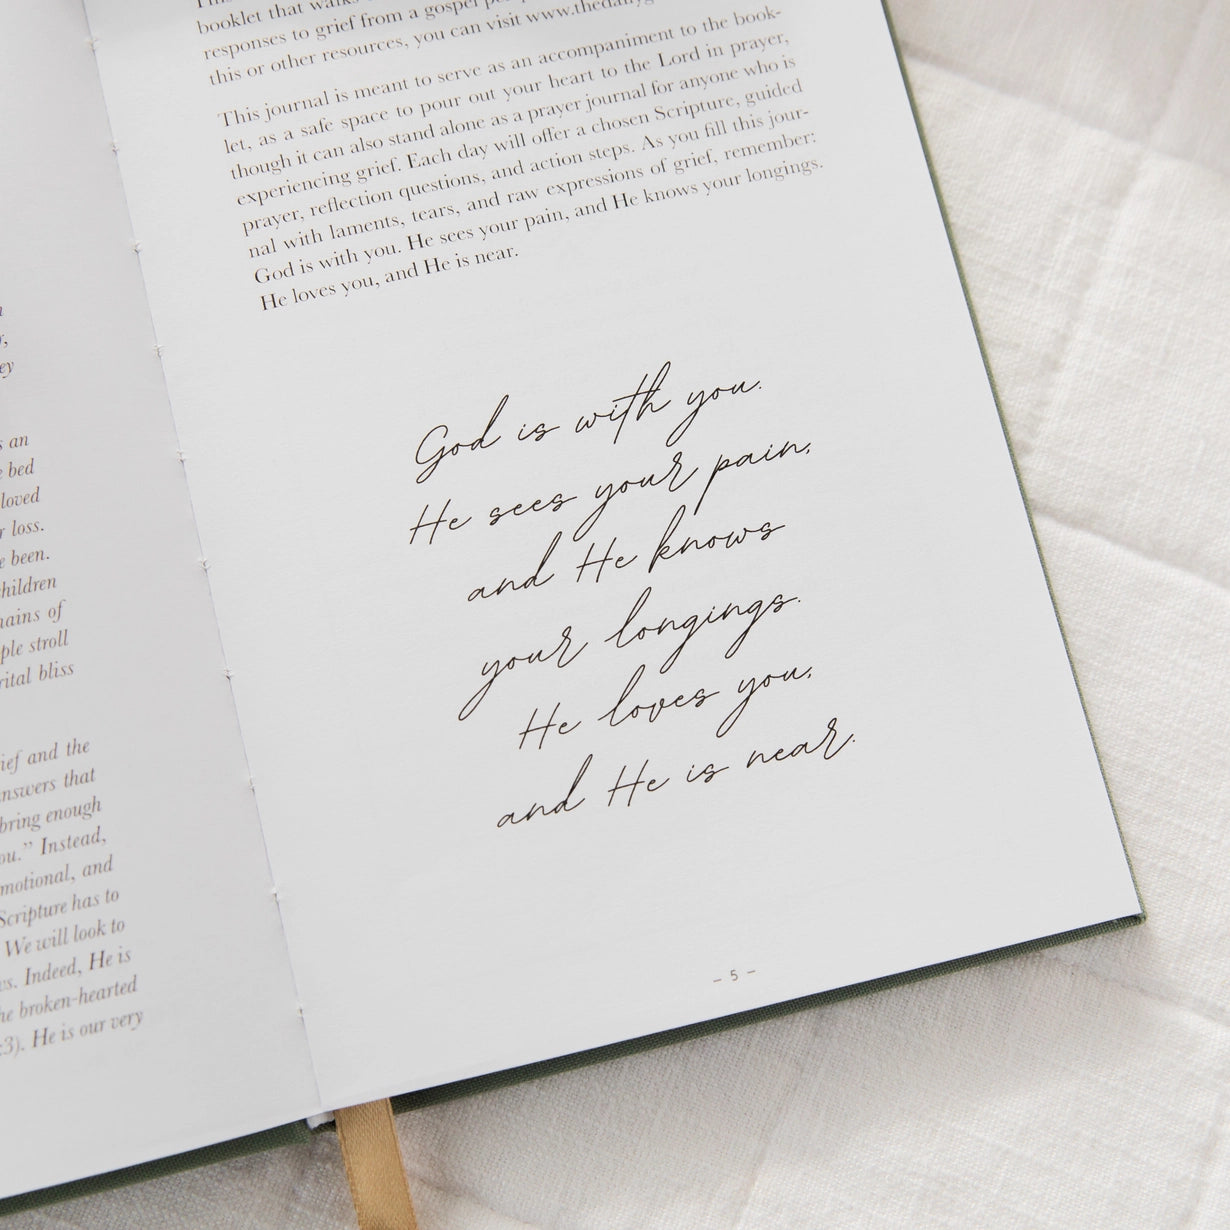 s an
e bed
loved
r loss.
e been.
hildren
ains of
ple stroll
rital bliss
ief and the
nswers that
bring enough
ou.” Instead,
motional, and
Scripture has to
We will look to
vs. Indeed, He is
he broken-hearted
:3). He is our very
booklet that walks
responses to grief from a gospel
this or other resources, you can visit www.thedaily
This journal is meant to serve as an accompaniment to the book-
let, as a safe space to pour out your heart to the Lord in prayer,
though it can also stand alone as a prayer journal for anyone who is
experiencing grief. Each day will offer a chosen Scripture, guided
prayer, reflection questions, and action steps. As you fill this jour-
nal with laments, tears, and raw expressions of grief, remember:
God is with you. He sees your pain, and He knows your longings.
He loves you, and He is near.
God is with you.
He sees your pain,
and He knows
your longings.
He loves you,
and He is near.
– 5 –